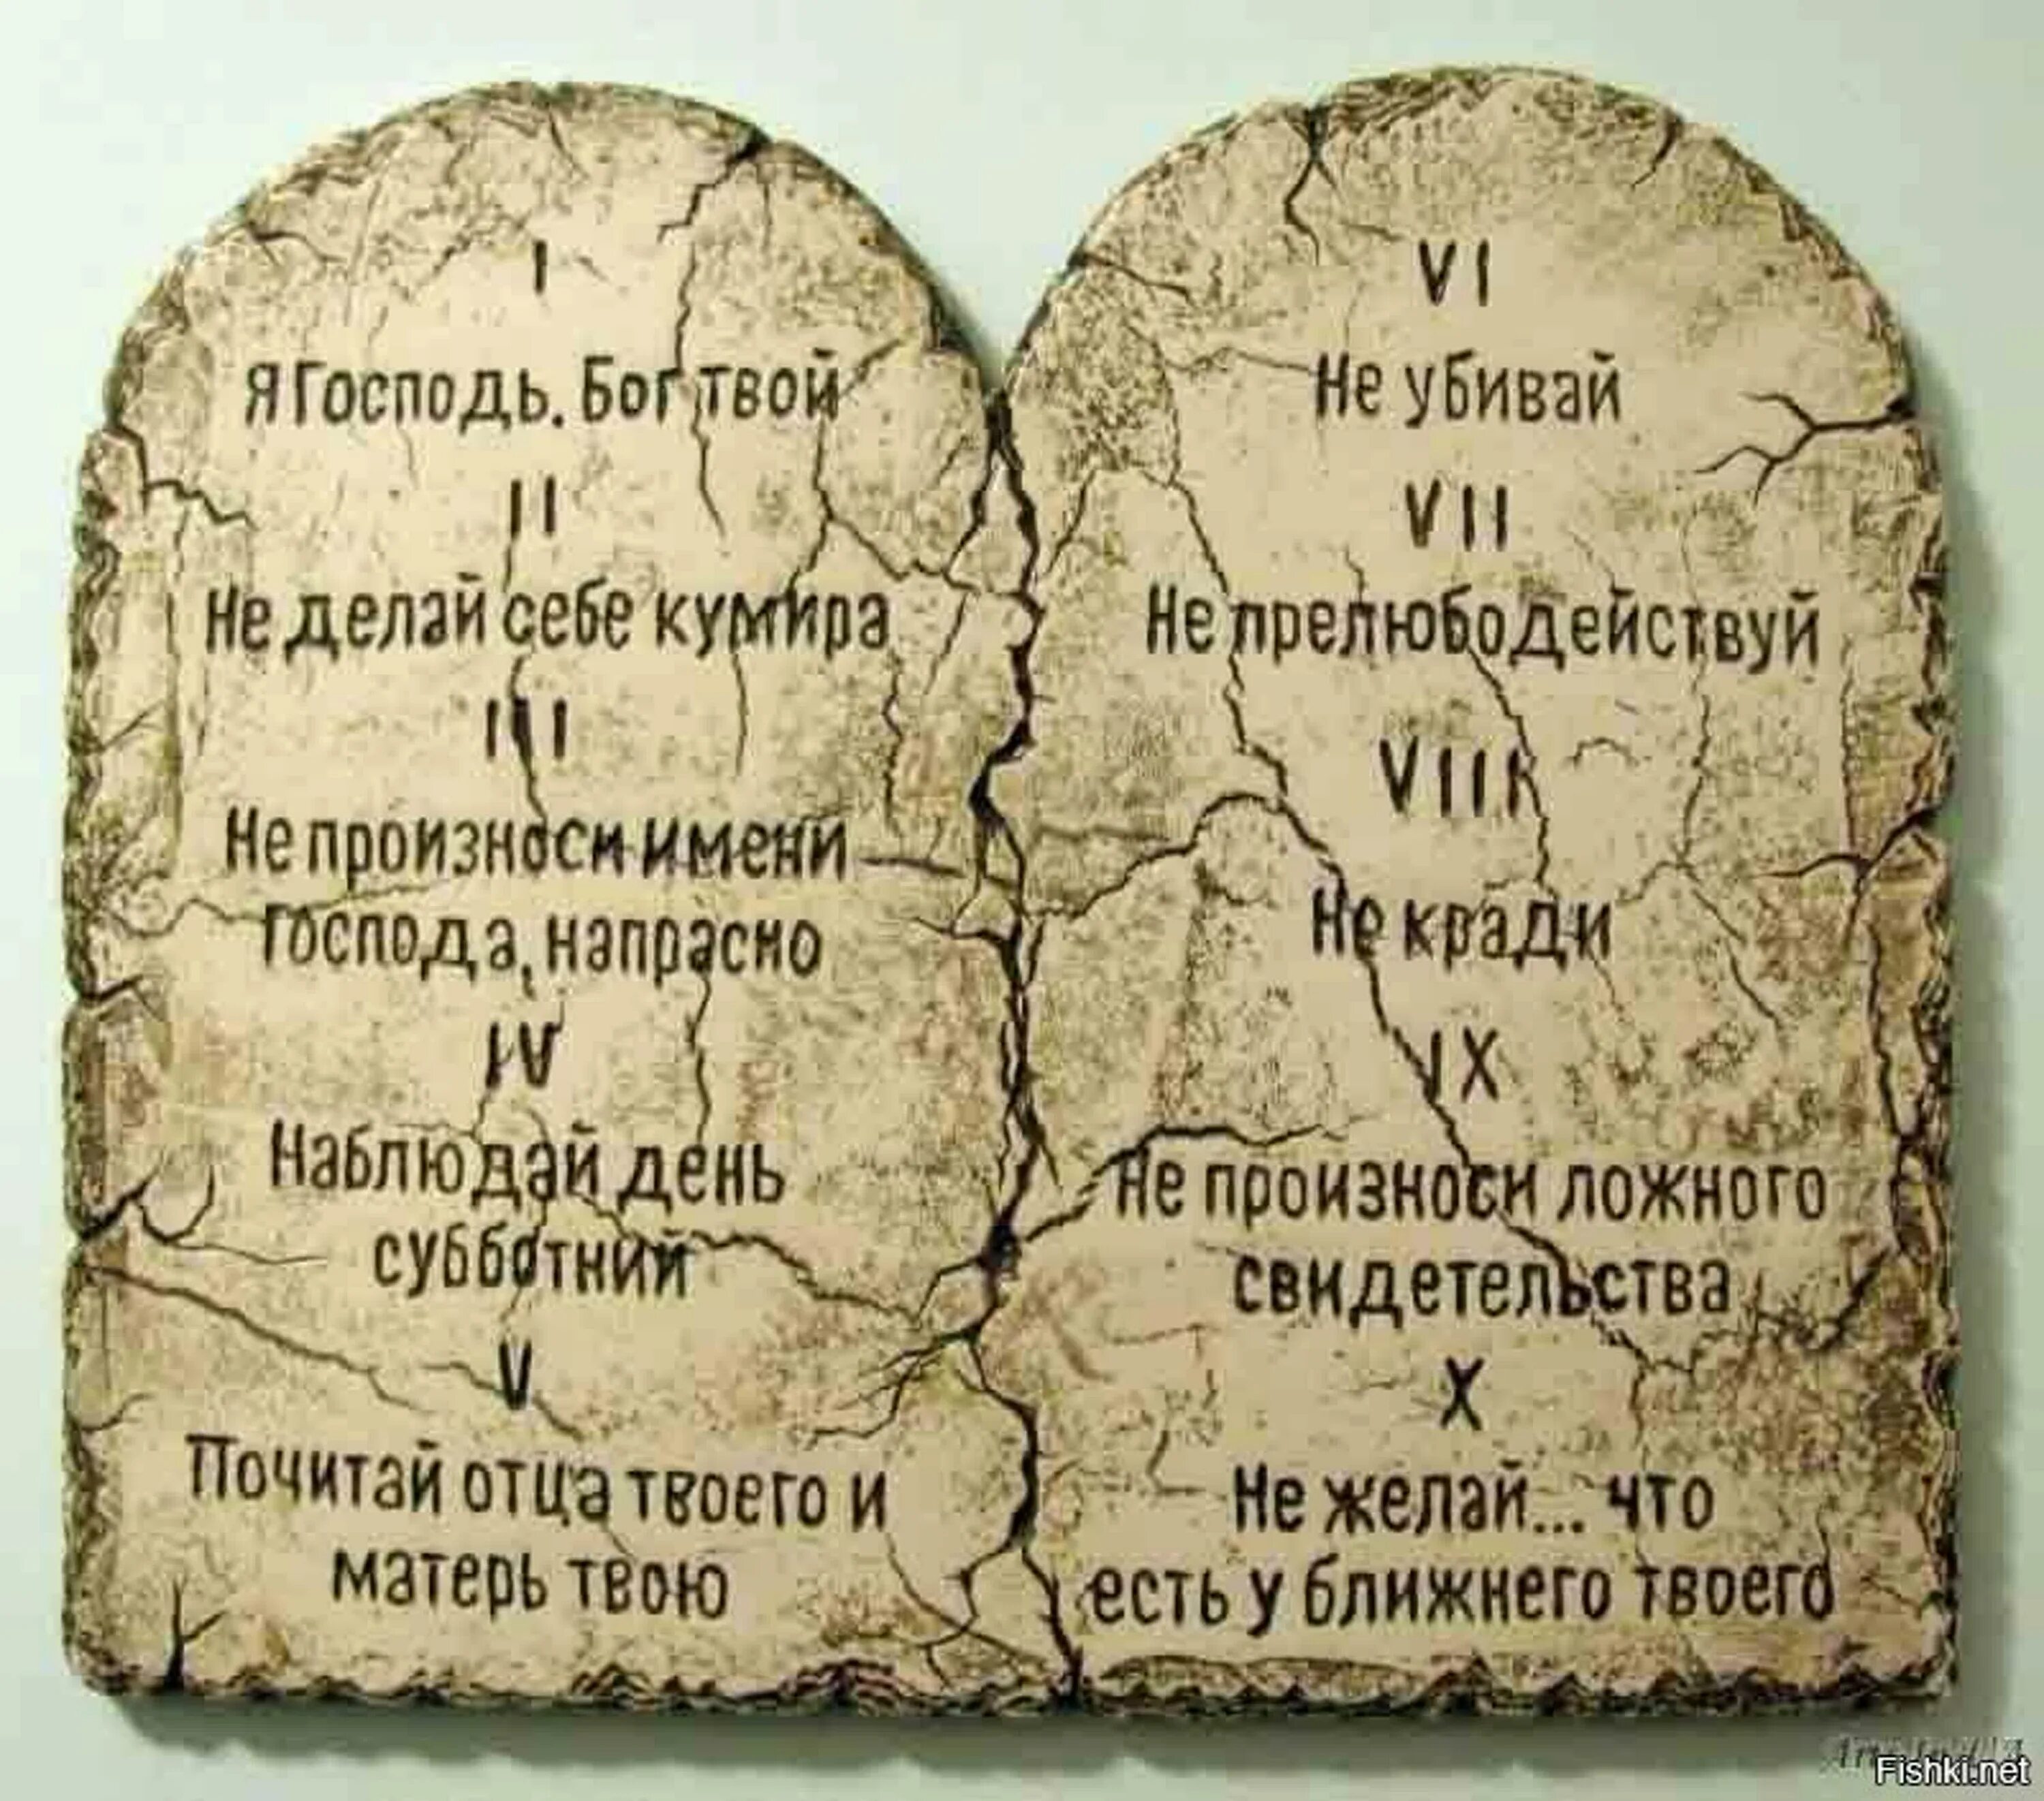 I
Я Господь. Бог твой
II
Не делай себе кумира
III
Не произноси имени
Господа, напрасно
IV
Наблюдай день
субботний
V
Почитай отца твоего и
матерь твою
VI
Не убивай
VII
Не прелюбодействуй
VIII
Не кради
IX
Не произноси ложного
свидетельства
X
Не желай... что
есть у ближнего твоего
Fishki.net